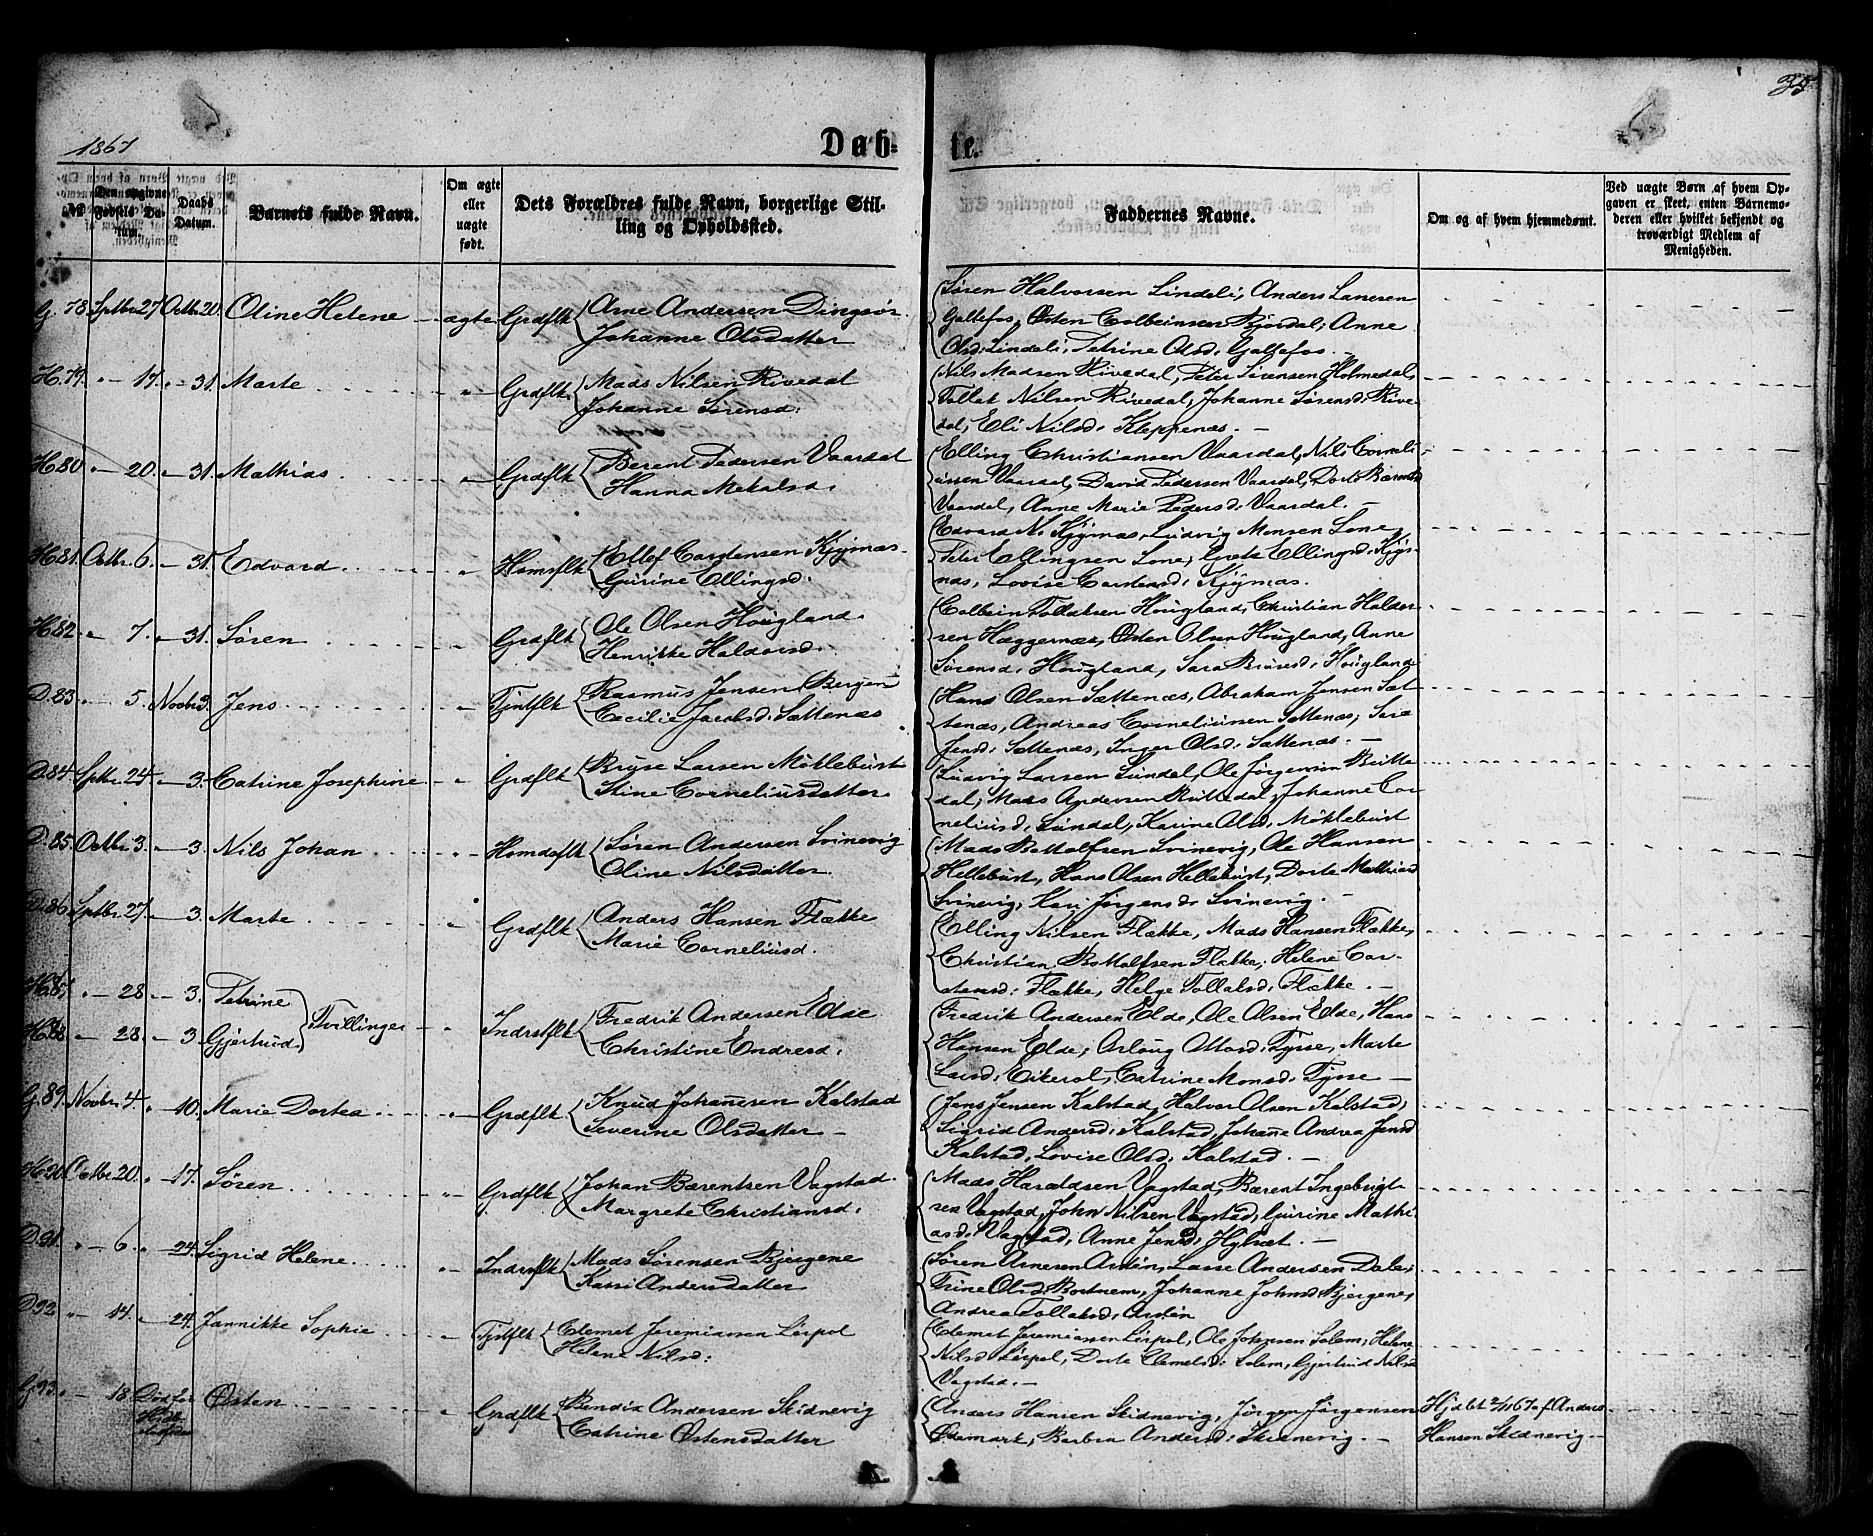 1867
Døb-
te.
35
№
Den opgivne Fødsels Datum.
Daabs Datum.
Barnets fulde Navn.
Om ægte eller uægte født.
Dets Forældres fulde Navn, borgerlige Stilling og Opholdssted.
Faddernes Navne.
Om og af hvem hjemmedøbt.
Ved uægte Børn af hvem Opgaven er skeet, enten Barnemoderen eller hvilket bekjendt og troværdigt Medlem af Menigheden.
G. 78. Sptbr 27 Octbr 20. Oline Helene ægte Grdflk Arne Andersen Dingsør.
Johanne Olsdatter
Søren Halvorsen Lindeli, Anders Lanesen
Galtefos, Østen Colbeinsen Bjordal, Anne
Olsd: Lindeli, Petrine Olsd: Galtefos. —
H. 79. " — 17. " — 31. Marte " Grdflk Mads Nilsen Rivedal
Johanne Sørensd:
Nils Madsen Rivedal, Peter Sivensen Holmedal,
Tollak Nilsen Rivedal, Johanne Sørensd: Rive-
dal, Eli Nilsd: Kleppenæs. —
H. 80 " — 20. " — 31. Mathias " Grdflk Berent Pedersen Vaardal
Hanna Mekalsd:
Elling Christiansen Vaardal, Nils Corneli-
ussen Vaardal, David Pedersen Vaardal, Dorte Bærentsd
Vaardal, Anne Marie Pedersd: Vaardal. —
H. 81. Octbr. 6. " — 31. Edvard " Hsmsflk Ellef Carstensen Kjymnæs.
Gurine Ellingsd:
Edvard N. Kjymnæs, Ludvig Monsen Lone,
Peter Ellingsen Lone, Grete Ellingsd: Kjym-
næs, Lovise Carstensd: Kjymnæs.
H. 82. " 7. " — 31. Søren " Grdflk Ole Olsen Hougland.
Henrikke Haldorsd.
Colbein Tollaksen Hougland, Christian Haldor-
sen Hæggernæs, Østen Olsen Hougland, Anne
Sørensd: Hougland, Sara Brused: Hougland
D. 83 " — 5. Novbr 3. Jens " Tjntflk Rasmus Jensen Bergen
Cecilie Jacobsd: Sættenæs
Hans Olsen Sættenæs, Abraham Jensen Sæt-
tenæs, Andreas Corneliussen Sættenæs, Sara
Jensd: Sættenæs, Inger Olsd: Sættenæs. —
D. 84. Sptbr. 24 — 3. Catrine Josephine " Grdflk Bruse Larsen Møklebust
Stine Corneliusdatter
Ludvig Larsen Sundal, Ole Jørgensen Britte-
dal, Mads Andersen Rutledal, Johanne Cor-
neliusd: Sundal, Karine Olsd: Møklebust
D. 85. Octbr 3. " — 3. Nils Johan " Hsmdsflk Søren Andersen Svinevig
Oline Nilsdatter.
Mads Bottolfsen Svinevig, Ole Hansen
Hellebust, Hans Olsen Hellebust, Dorte Mathiasd
Svinevig, Kari Jørgensd: Svinevig. —
D. 86. Sptbr 27. — 3. Marte " Grdflk Anders Hansen Flække
Marie Corneliusd.
Elling Nilsen Flække, Mads Hansen Flække,
Christian Bottolfsen Flække, Helene Car-
stensd: Flække, Helge Tollaksd: Flække. —
H. 87. " — 28 " — 3. Petrine
H. 88 " — 28. " — 3. Gjertrud Tvillinger " Indrstflk Fredrik Andersen Elde
Christine Endresd:
Fredrik Andersen Elde, Ole Olsen Elde, Hans
Hansen Elde, Arloug Ottosd: Tysse, Marte
Larsd: Eikerol, Catrine Monsd: Tysse —
G. 89. Novbr. 4. " 10. Marie Dortea " Grdflk Knud Johanesen Kalstad
Severine Olsdatter —
Jens Jensen Kalstad, Halvor Olsen Kalstad,
Sigrid Andersd: Kalstad, Johane Andrea Jensd
Kalstad, Lovise Olsd: Kalstad. —
H. 90. Octbr 20. " 17. Søren " Grdflk Johan Bærentsen Vagstad.
Margrete Christiansd:
Mads Haraldsen Vagstad, Bærent Ingebrigt-
sen Vagstad, John Nilsen Vagstad, Gurine Mathi-
asd: Vagstad, Anne Jensd: Hylset. —
D. 91. " — 6. " 24. Sigrid Helene " Indrstflk Mads Sørensen Bjergene
Kari Andersdatter
Søren Arnesen Asdøn, Lasse Andersen Dale,
Trine Olsd: Bortnem, Johanne Johnsd: Bjergene,
Andrea Tollaksd: Asdøn
D. 92 " — 14. " 24. Jannikke Sophie " Tjstflk Clemet Jeremiassen Leirpol
Helene Nilsd:
Clemet Jeremiassen Leirpol, Ole Johnsen Solem, Helene
Nilsd: Leirpol, Dorte Clemetsd: Solem, Gjertrud Nilsd
Vagstad. —
G. 93. " — 18. Død før Østen " Grdflk Bendix Andersen Skidnevig
Catrine Østensdatter
Anders Hansen Skidnevig, Jørgen Jørgensen
Ødemark, Barbra Andersd: Skidnevig. —
Hjdbt 2/11 67 af Anders
Hanson Skidnevig —